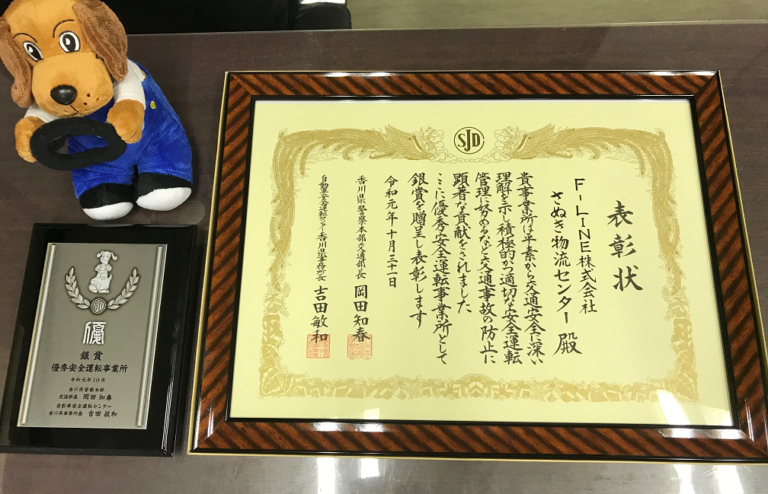 SJD
表彰状
F-LINE株式会社
さぬき物流センター 殿
貴事業所は平素から交通安全に深い
理解を示し積極的かつ適切な安全運転
管理に努めるなど交通事故の防止に
顕著な貢献をされました
ここに優秀安全運転事業所として
銀賞を贈呈し表彰します
令和元年十月三十一日
香川県警察本部交通部長 岡田知春
自動車安全運転センター香川県事務所長 吉田敏和
SJD
優
銀賞
優秀安全運転事業所
令和元年10月
香川県警察本部
交通部長 岡田 知春
自動車安全運転センター
香川県事務所長 吉田 敏和